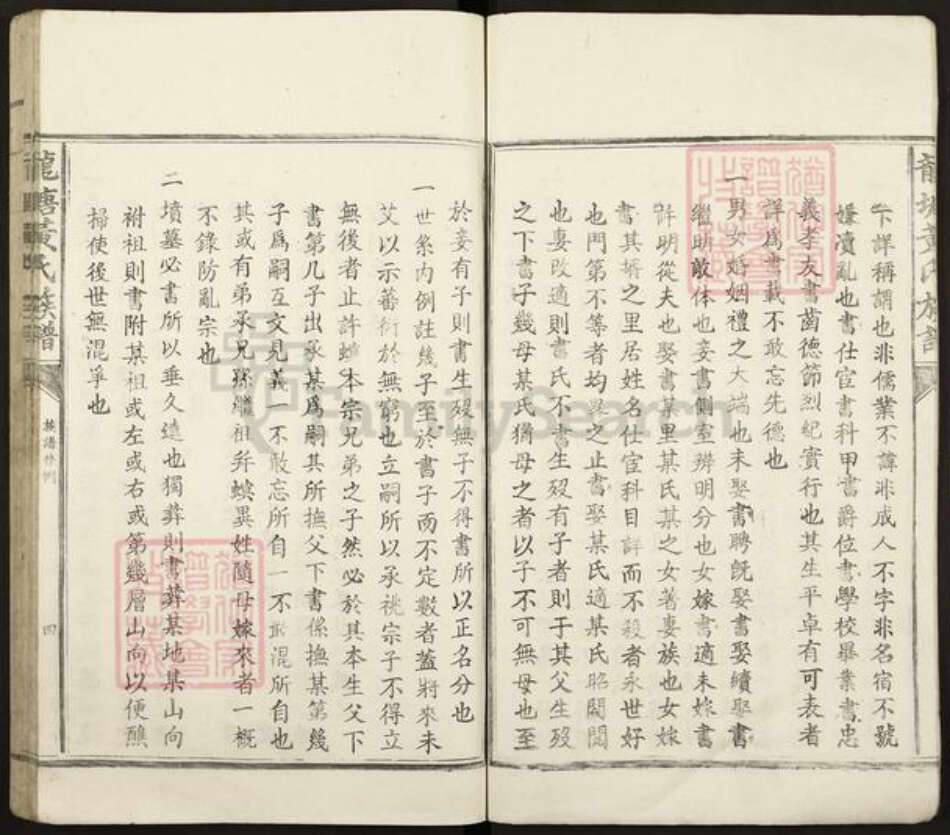 龍塘黃氏族譜
卞詳稱謂也非儒業不諱非成人不字非名宿不號
嫌凟亂也書仕宦書科甲書爵位書學校畢業書忠
義孝友書齒德節烈紀實行也其生平卓有可表者
詳為書載不敢忘先德也
一男女婚姻禮之大端也未娶書聘既娶書娶續娶書
繼明敵体也妾書側室辨明分也女嫁書適未嫁書
許明從夫也娶書某里某氏某之女著妻族也女嫁
書其婿之里居姓名仕宦科目詳而不殺者永世好
也門第不等者均畧之止書娶某氏適某氏昭閥閱
也妻改適則書氏不書生歿有子者則于其父生歿
之下書子幾母某氏猶母之者以子不可無母也至
於妾有子則書生歿無子不得書所以正名分也
一世系內例註幾子至於書子而不定數者蓋將來未
艾以示蕃衍於無窮也立嗣所以承祧宗子不得立
無後者止許螟本宗兄弟之子然必於其本生父下
書第几子出承某為嗣其所撫父下書係撫某第幾
子爲嗣互文見義一不敢忘所自一不敢混所自也
其或有弟承兄孫繼祖并螟異姓隨母嫁來者一概
不錄防亂宗也
二墳墓必書所以垂久遠也獨葬則書葬某地某山向
祔祖則書附某祖或左或右或第幾層山向以便醮
掃使後世無混爭也
龍塘黃氏族譜
族譜条例
四
FamilySearch